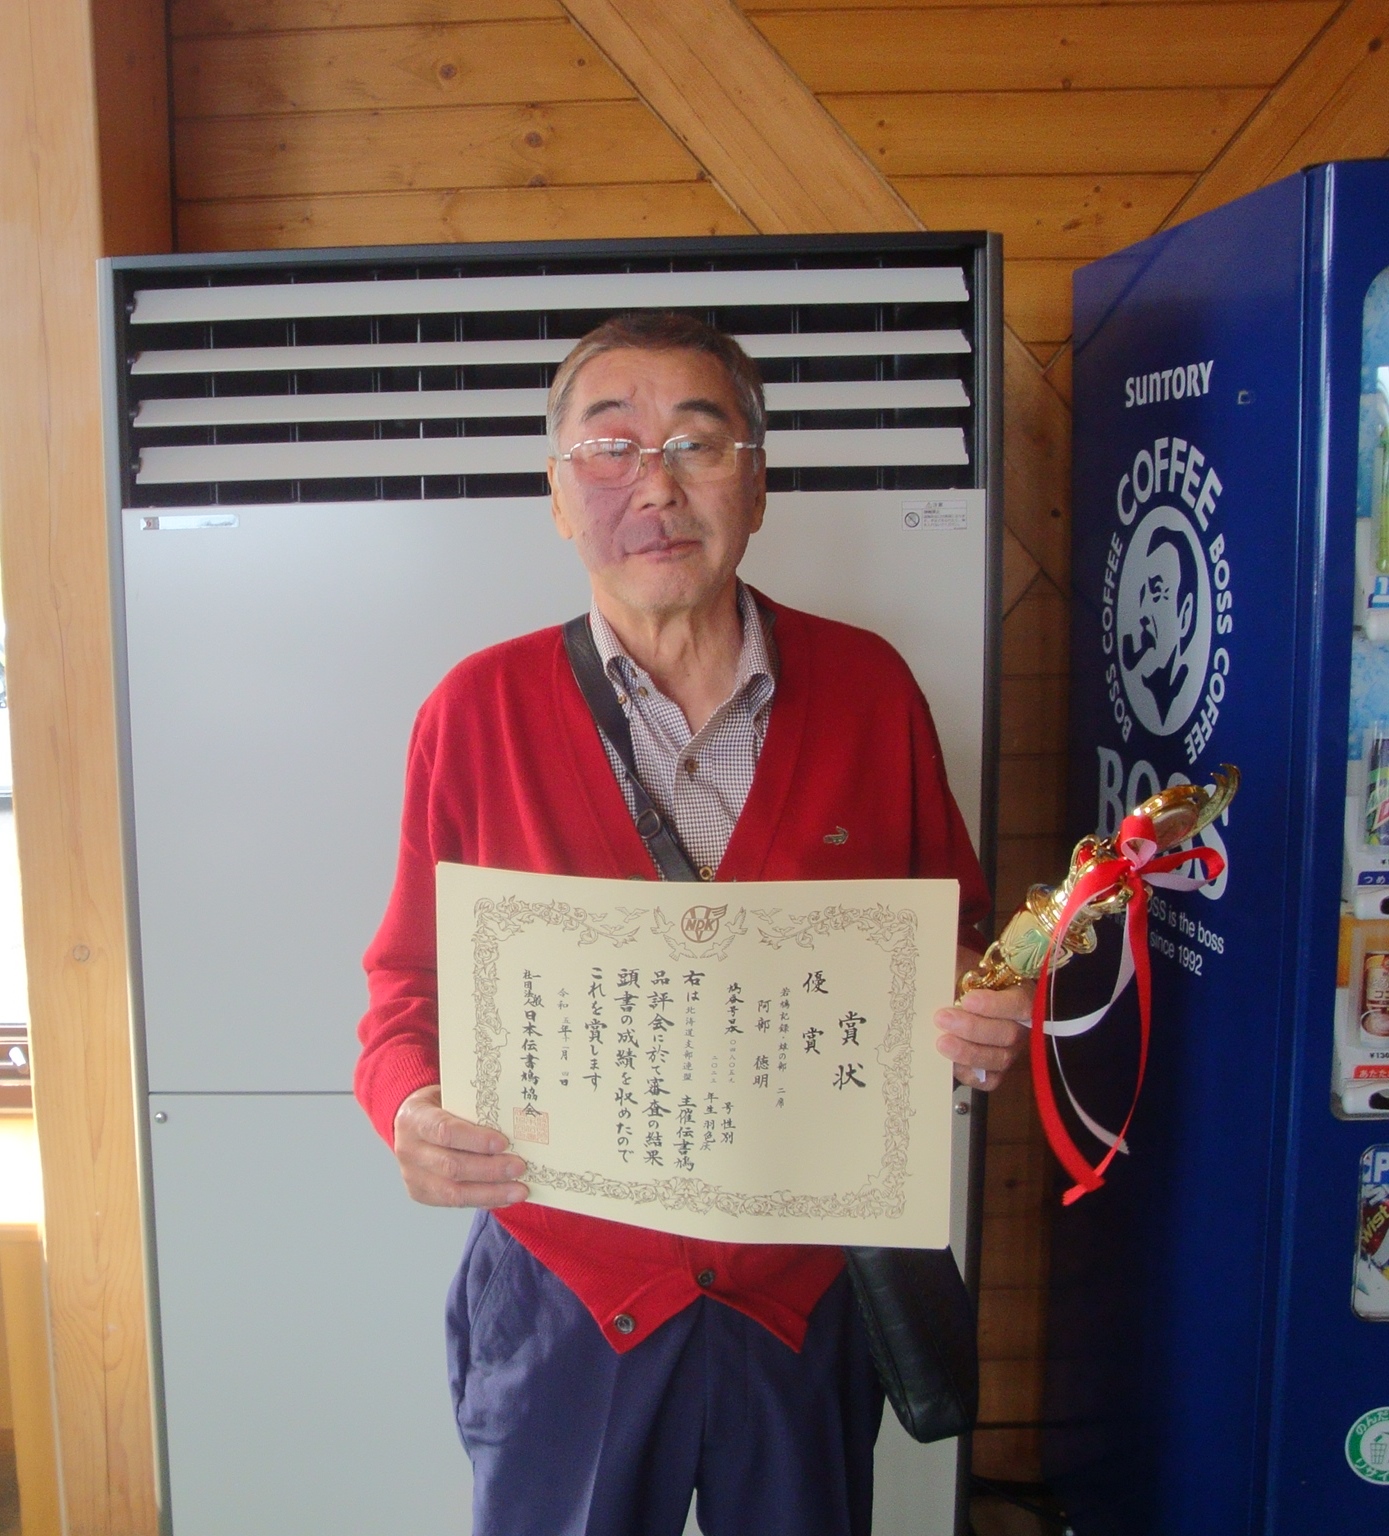 賞状
優賞
若鳩記録・雄の部 二席
阿部 徳明
鳩番号日本 〇四八〇五七 号性別
二〇二二 年生羽色灰
右は北海道支部連盟 主催伝書鳩
品評会に於て審査の結果
頭書の成績を収めたので
これを賞します
令和 五年 十一月 四日
一般社団法人日本伝書鳩協会
NDK
SUNTORY
COFFEE
BOSS COFFEE
BOSS COFFEE
BOSS
BOSS is the boss
since 1992
つめ
あたた
のんだ
リサイ